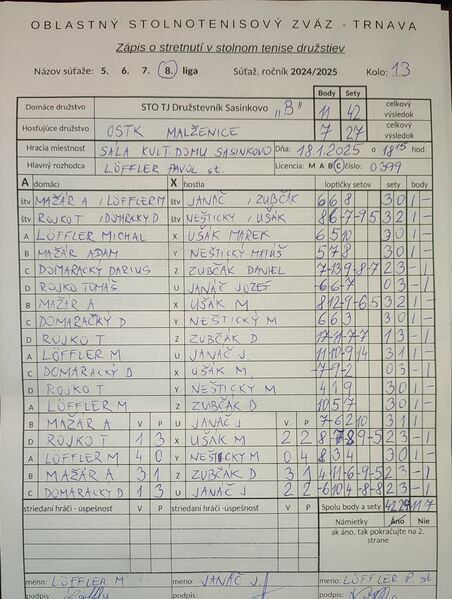 OBLASTNÝ STOLNOTENISOVÝ ZVÄZ - TRNAVA
Zápis o stretnutí v stolnom tenise družstiev
Názov súťaže: 5. 6. 7. 8. liga Súťaž. ročník 2024/2025 Kolo: 13
Body Sety
Domáce družstvo STO TJ Družstevník Sasinkovo "B" 11 42 celkový výsledok
Hosťujúce družstvo OŠTK MALŽENICE 7 27 celkový výsledok
Hracia miestnosť SÁLA KULT. DOMU SASINKOVO Dňa: 18.1.2025 o 18 15 hod
Hlavný rozhodca LÖFFLER PAVOL st. Licencia: M A B C číslo: 0399
A domáci X hostia loptičky setov sety body
štv MAŽÁR A , LÖFFLER M štv JANÁČ , ZUBČÁK 6 6 8 3 0 1 -
štv ROJKO T , DOMARACKÝ D štv NEŠTICKÝ , UŠÁK 8 6 -7 -9 5 3 2 1 -
A LÖFFLER MICHAL X UŠÁK MAREK 6 5 10 3 0 1 -
B MAŽÁR ADAM Y NEŠTICKÝ MATÚŠ 5 7 8 3 0 1 -
C DOMARACKÝ DARIUS Z ZUBČÁK DANIEL 7 -13 9 -8 -7 2 3 - 1
D ROJKO TOMÁŠ U JANÁČ JOZEF -6 -6 -7 0 3 - 1
B MAŽÁR A X UŠÁK M 8 12 -9 -6 5 3 2 1 -
C DOMARACKÝ D Y NEŠTICKÝ M 6 6 3 3 0 1 -
D ROJKO T Z ZUBČÁK D 1 3 - 1
A LÖFFLER M U JANÁČ J 11 10 -9 14 3 1 1 -
C DOMARACKÝ D X UŠÁK M -7 -9 -2 0 3 - 1
D ROJKO T Y NEŠTICKÝ M 4 1 9 3 0 1 -
A LÖFFLER M Z ZUBČÁK D 10 5 7 3 0 1 -
B MAŽÁR A V P U JANÁČ J V P -7 6 2 10 3 1 1 -
D ROJKO T 1 3 X UŠÁK M 2 2 2 3 - 1
A LÖFFLER M 4 0 Y NEŠTICKÝ M 0 4 8 3 4 3 0 1 -
B MAŽÁR A 3 1 Z ZUBČÁK D 3 1 2 3 - 1
C DOMARACKÝ D 1 3 U JANÁČ J 2 2 -6 10 4 -8 -8 2 3 - 1
striedaní hráči - úspešnosť V P striedaní hráči - úspešnosť V P Spolu body a sety 42 27 11 7
Námietky Áno Nie
ak áno, tak pokračujte na 2. strane
meno: LÖFFLER M meno: JANÁČ J. meno: LÖFFLER P. st
podpis: podpis: podpis: